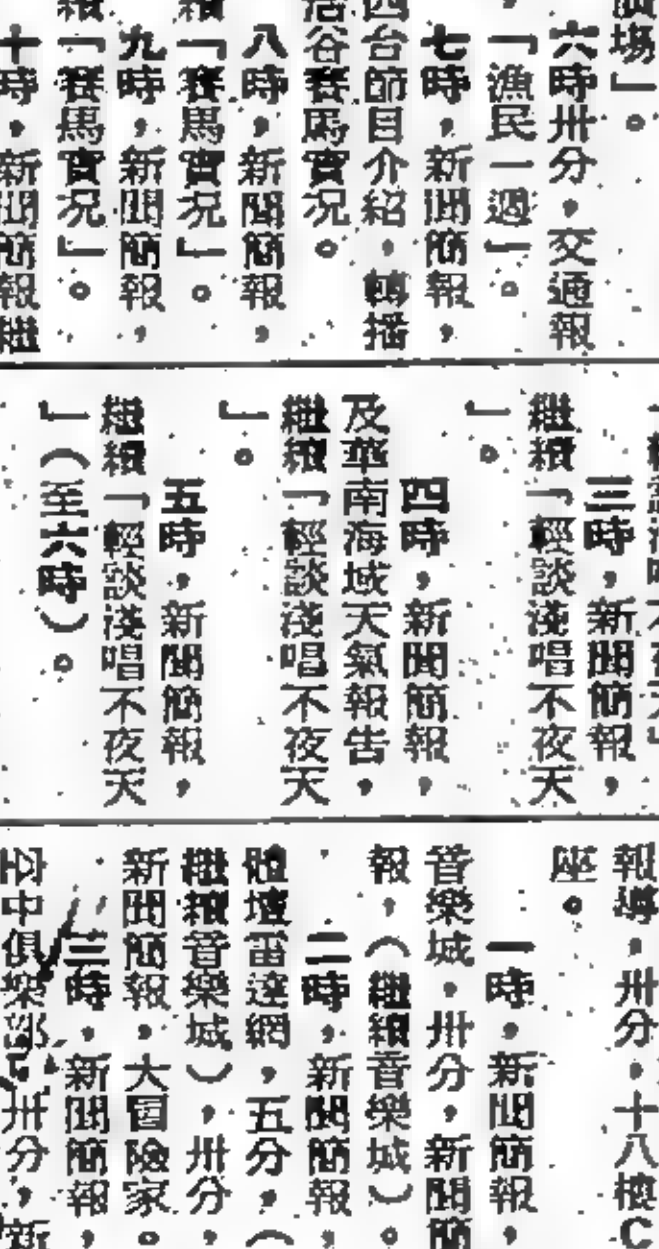 廣場」。
六時卅分，交通報
，「漁民一週」。
七時，新聞簡報，
四台節目介紹，轉播
谷賽馬實况。
八時，新聞簡報，
續「賽馬實况」。
九時，新聞簡報，
續「賽馬實况」。
十時，新聞簡報繼
三時，新聞簡報，
繼續「輕談淺唱不夜天
」。
四時，新聞簡報，
及華南海域天氣報告，
繼續「輕談淺唱不夜天
」。
五時，新聞簡報，
繼續「輕談淺唱不夜天
」（至六時）。
報導，卅分，十八樓C
座。
一時，新聞簡報，
音樂城，卅分，新聞簡
報，（繼續音樂城）。
二時，新聞簡報，
體壇雷達網，五分，（
繼續音樂城），卅分，
新聞簡報，大冒險家。
三時，新聞簡報，
中俱樂部，卅分，新